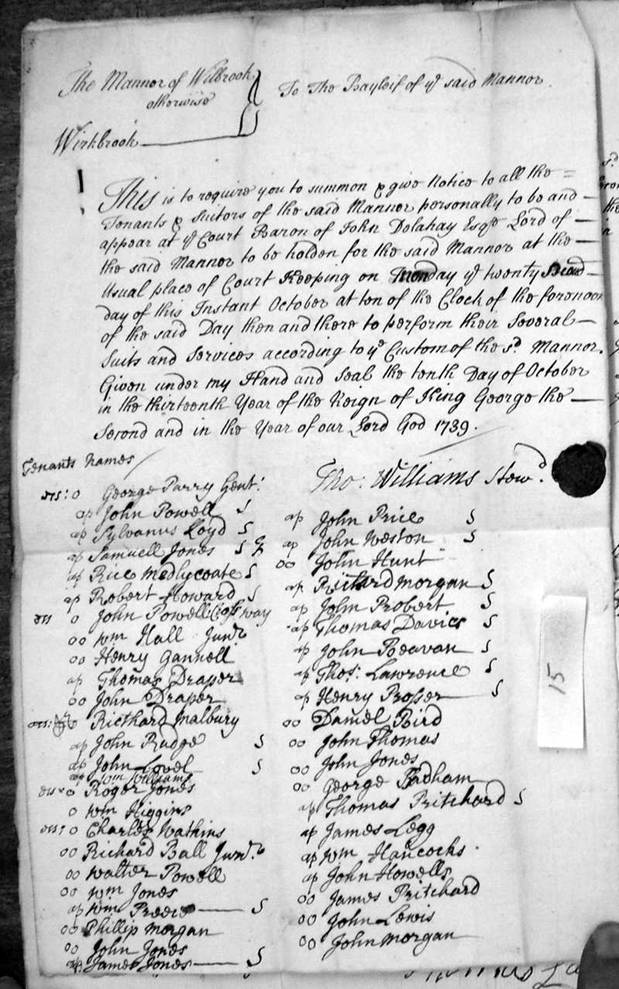 The Mannor of Wilbrook
otherwise
Wirkbrook
To The Bayleif of ye said Mannor
This is to require you to summon & give Notice to all the =
Tenants & Suitors of the said Mannor personally to be and
appear at ye Court Baron of John Delahay Esqr. Lord of
the said Mannor to be holden for the said Mannor at the
Usual place of Court Keeping on Monday ye twenty Second
day of this Instant October at ten of the Clock of the forenoon
of the said Day then and there to perform their Several
Suits and Services according to ye Custom of the sd. Mannor.
Given under my Hand and Seal the tenth Day of October
in the thirteenth Year of the Reign of King George the
Second and in the Year of our Lord God 1739.
Tenants Names
Tho: Williams Stewd.
ess: o George Parry Gent:
ap John Powell S
ap Sylvanus Loyd S
ap Samuell Jones S
ap Rice Medlycoate S
ap Robert Howard S
ess o John Powell way
oo Wm Hall Junr.
oo Henry Gannell
ap Thomas Draper
oo John Draper
ess: Richard Malbury
ap John Rudge S
ap John Lovel S
ap Wm Williams
ess: o Roger Jones
o Wm Higgins
ess: o Charles Watkins
oo Richard Ball Junr.
oo Walter Powell
oo Wm Jones
ap Wm Preece S
oo Phillip Morgan
oo John Jones
ap James Jones S
ap John Price S
ap John Weston S
oo John Hunt
ap Richard Morgan S
ap John Probert S
ap Thomas Davies S
ap John Beavan S
ap Thos. Lawrence S
ap Henry Proser S
oo Daniel Bird
oo John Thomas
oo John Jones
oo George Badham
ap Thomas Pritchard S
ap James Legg
ap Wm Hancocks
ap John Howells
oo James Pritchard
oo John Lewis
oo John Morgan
15